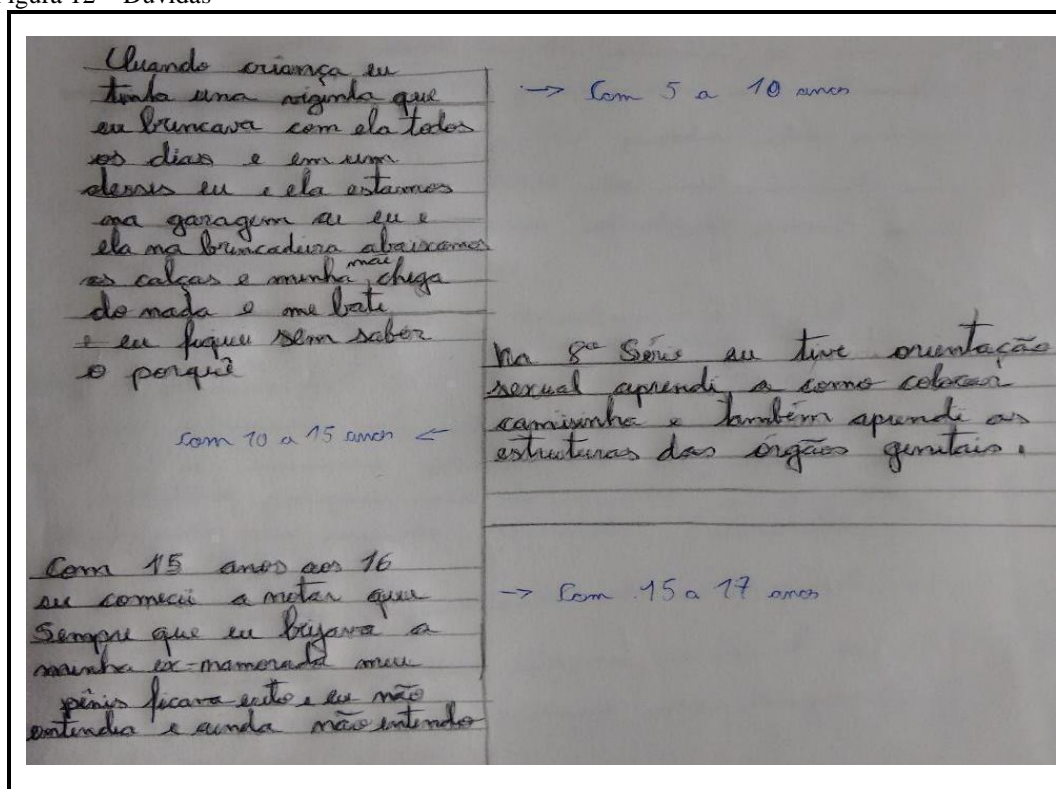 Figura 12 – Dúvidas
Quando criança eu
tinha uma viginha que
eu brincava com ela todos
os dias e em um
desses eu e ela estamos
na garagem ai eu e
ela na brincadeira abaixamos
as calças e minha mãe chega
do nada e me bate
e eu fiquei sem saber
o porquê
→ Com 5 a 10 anos
Na 8ª Série eu tive orientação
sexual aprendi a como colocar
camisinha e também aprendi as
estruturas dos órgãos genitais.
Com 10 a 15 anos ←
Com 15 anos aos 16
eu comecei a notar que
Sempre que eu beijava a
minha ex-namorada meu
pênis ficava erito e eu não
entendia e ainda não entendo
→ Com 15 a 17 anos